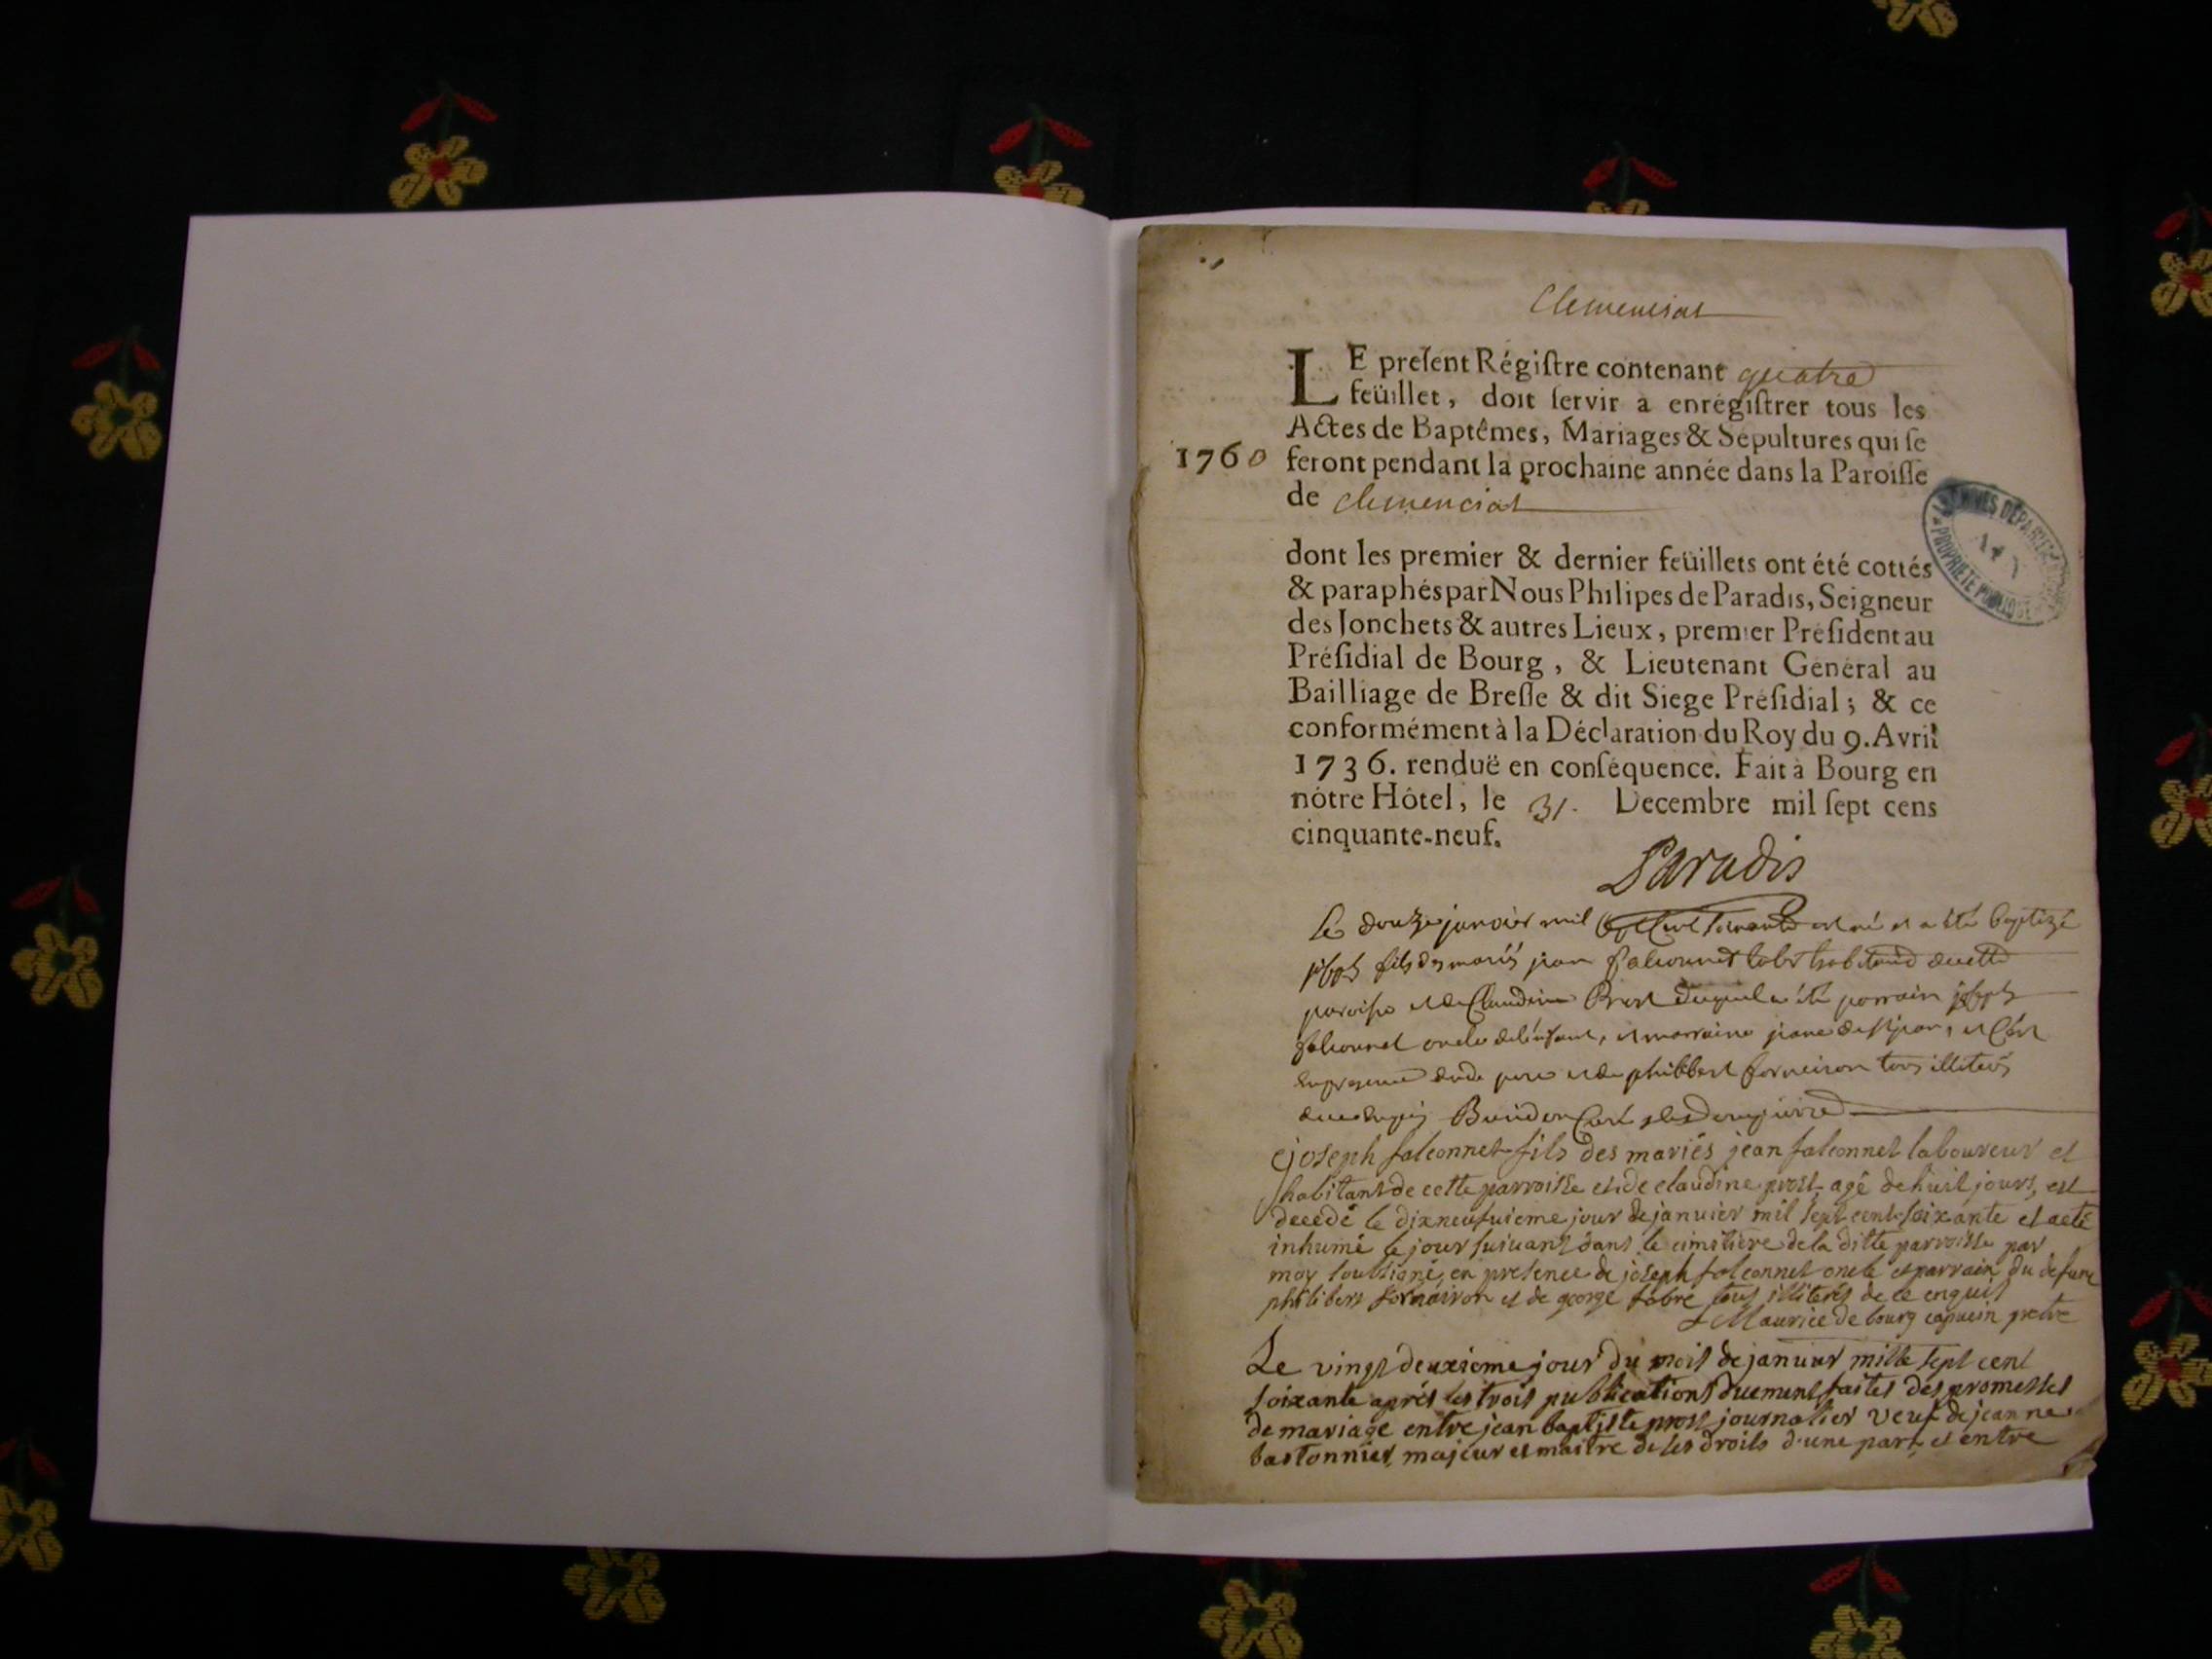 Clemencias
LE present Régistre contenant quatre
feüillet, doit servir à enrégistrer tous les
Actes de Baptêmes, Mariages & Sépultures qui se
1760 feront pendant la prochaine année dans la Paroisse
de clemenciat
ARCHIVES DÉPARTEMENTALES
AIN
PROPRIÉTÉ PUBLIQUE
dont les premier & dernier feüillets ont été cottés
& paraphés par Nous Philipes de Paradis, Seigneur
des Jonchets & autres Lieux, premier Président au
Présidial de Bourg, & Lieutenant Général au
Bailliage de Bresse & dit Siege Présidial; & ce
conformément à la Déclaration du Roy du 9. Avril
1736. renduë en conséquence. Fait à Bourg en
nôtre Hôtel, le 31. Decembre mil sept cens
cinquante-neuf.
Paradis
Le douze janvier mil sept cent soixante est né et a été baptizé
joseph fils des mariés jean falconnet habitant de cette
paroisse et de Claudine Prost duquel a été parrain joseph
falconnet oncle de l'enfant, et marraine
en presence dudt pere et de philibert forneiron tous illiterés
de ce enquis
joseph falconnet fils des mariés jean falconnet laboureur et
habitant de cette parroisse et de claudine prost, agé de huit jours, est
decedé le dixneufuieme jour de janvier mil sept cent soixante et a eté
inhumé le jour suivant dans le cimitiere de la ditte parroisse par
moy soussigné, en presence de joseph falconnet oncle et parrain du defunt
philibert fornairon et de george fabre tous illiterés de ce enquis
f Maurice de bourg capucin pretre
Le vingt deuxieme jour du mois de janvier mille sept cent
soixante aprés les trois publications duement faites des promesses
de mariage entre jean baptiste prost journalier veuf de jeanne
bastonnier, majeur et maitre de ses droits d'une part, et entre